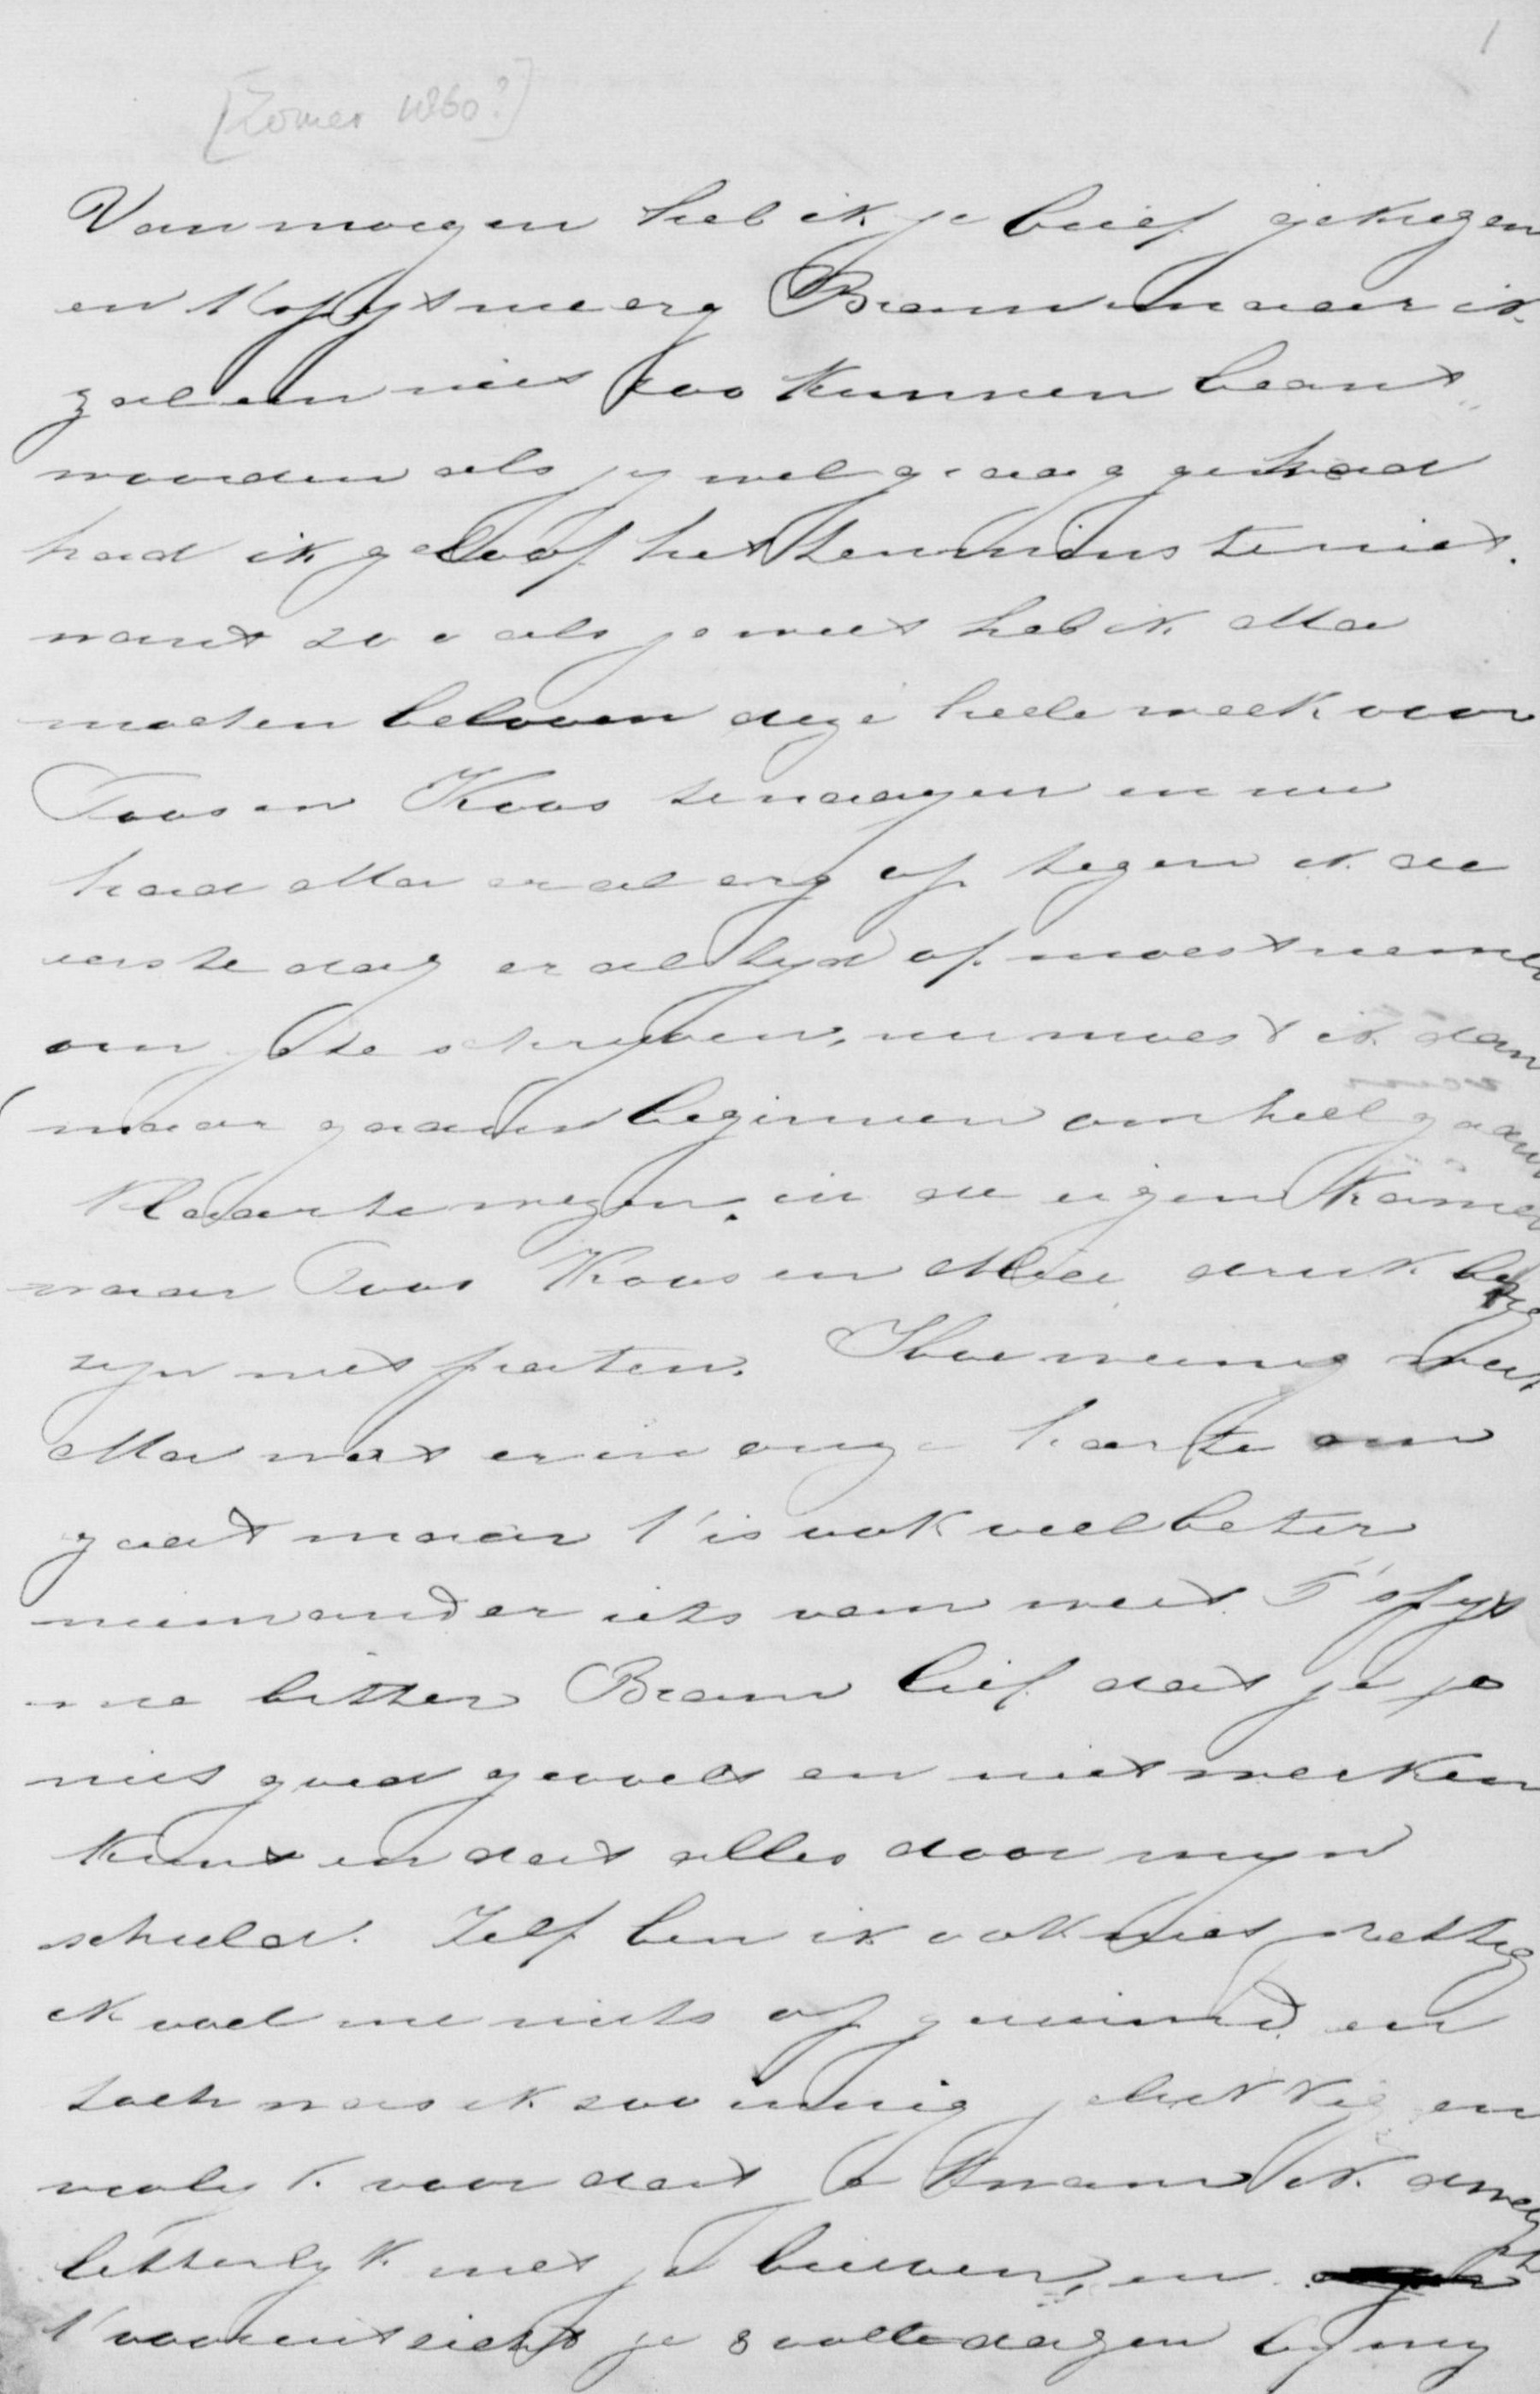 1
[Zomer 1860?]
Van morgen heb ik je brief gekregen
en 't spyt me erg Bram maar ik
zal em niet zoo kunnen beant„
woorden als jy wel graag gehad
had ik geloof het tenminste niet.
want zoo als je weet heb ik Ma
moeten beloven deze heele week voor
Toos en Koos te zorgen en nu
had Ma er al erg op tegen ik de
eerste dag er al tyd af moest nemen
om je te schryven, nu moest ik dan
maar gaan beginnen om heel gauw
klaar te wezen, in de eigen kamer
waar Toos Koos en Mee druk bezig
zyn met praten. Hoe weinig weet
Ma wat er in onze harten om
gaat maar 't is ook veel beter
niemand er iets van weet. T' spyt
me bitter Bram lief dat je je
niet goed gevoelt en niet werken
kunt en dat alles door myn
schuld. Zelf ben ik ook niet prettig
ik voel me niets opgeruimd en
toch was ik zoo innig gelukkig en
vrolyk voor dat je kwam ik dweep
letterlyk met je brieven, en
't vooruitzicht je 8 volle dagen by my